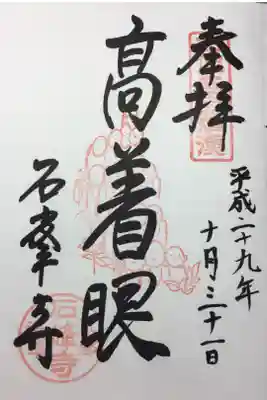 奉拝
平成二十九年
十月三十一日
高着眼
石峯寺
石峰寺